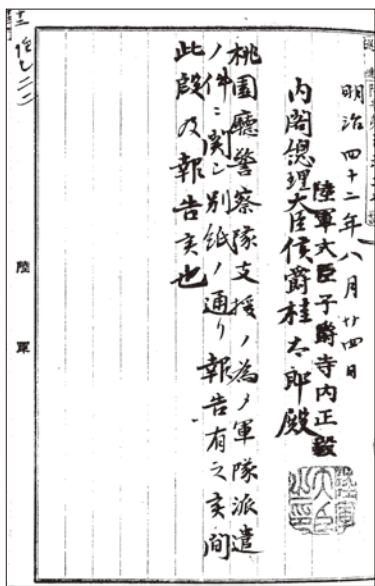 明治四十二年八月廿四日
陸軍大臣子爵寺内正毅
内閣總理大臣侯爵桂太郎殿
桃園廳警察隊支援ノ為メ軍隊派遣
ノ件ニ関シ別紙ノ通リ報告有之候間
此段及報告候也
陸軍